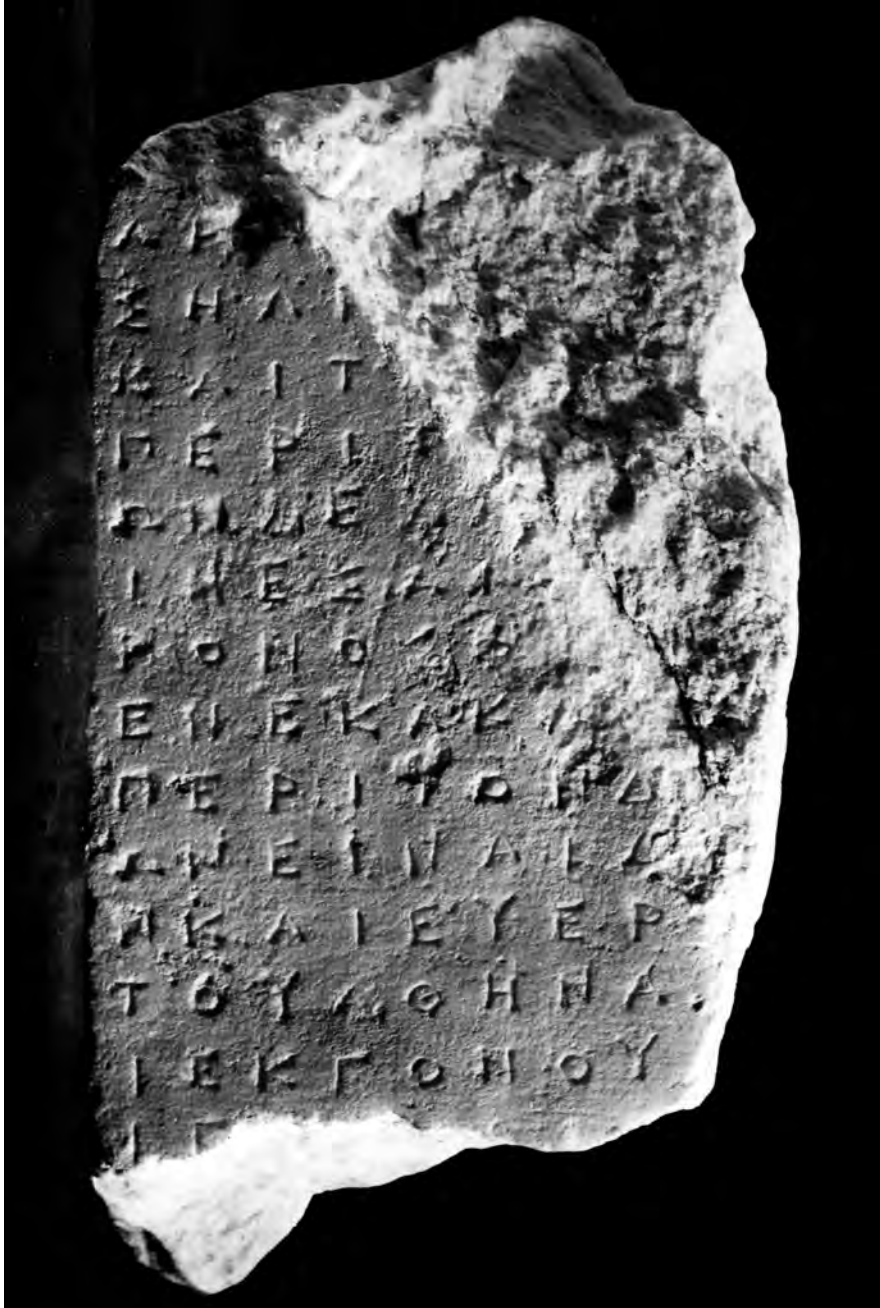 ΑΡ
ΣΗΛΙ
ΚΑΙΤ
ΠΕΡΙ
ΩΝΔΕ
ΙΝΕΣΑΙ
ΡΟΝΟΛΟ
ΕΝΕΚΑΚ
ΠΕΡΙΤΟΝΔ
ΑΝΕΙΝΑΙΔ
ΝΚΑΙΕΥΕΡ
ΤΟΥΑΘΗΝΑ
ΙΕΚΓΟΝΟΥ